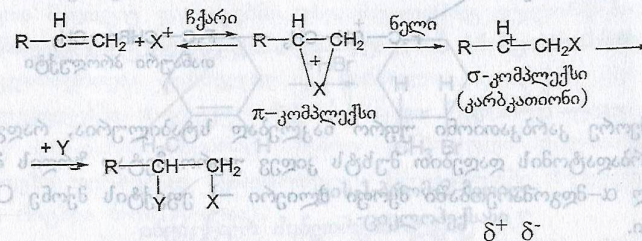 H
R—C=CH₂ + X⁺ ჩქარი R—CH—CH₂ ნელი R—CH—CH₂X
+ +
X
π–კომპლექსი
σ-კომპლექსი
(კარბკათიონი)
+ Y R—CH—CH₂
Y X
δ⁺ δ⁻